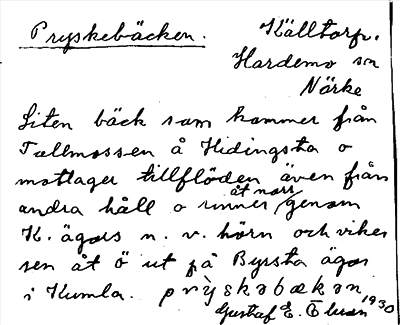 Pryskebäcken. Källtorp.
Hardemo sn
Närke
Liten bäck som kommer från
Tallmossen å Hidingsta o
mottager tillflöden även från
andra håll o rinner åt norr genom
K. ägors n. v. hörn och viker
sen åt ö ut på Byrsta ägor
i Kumla. pryskəbækən
Gustaf E. 1930